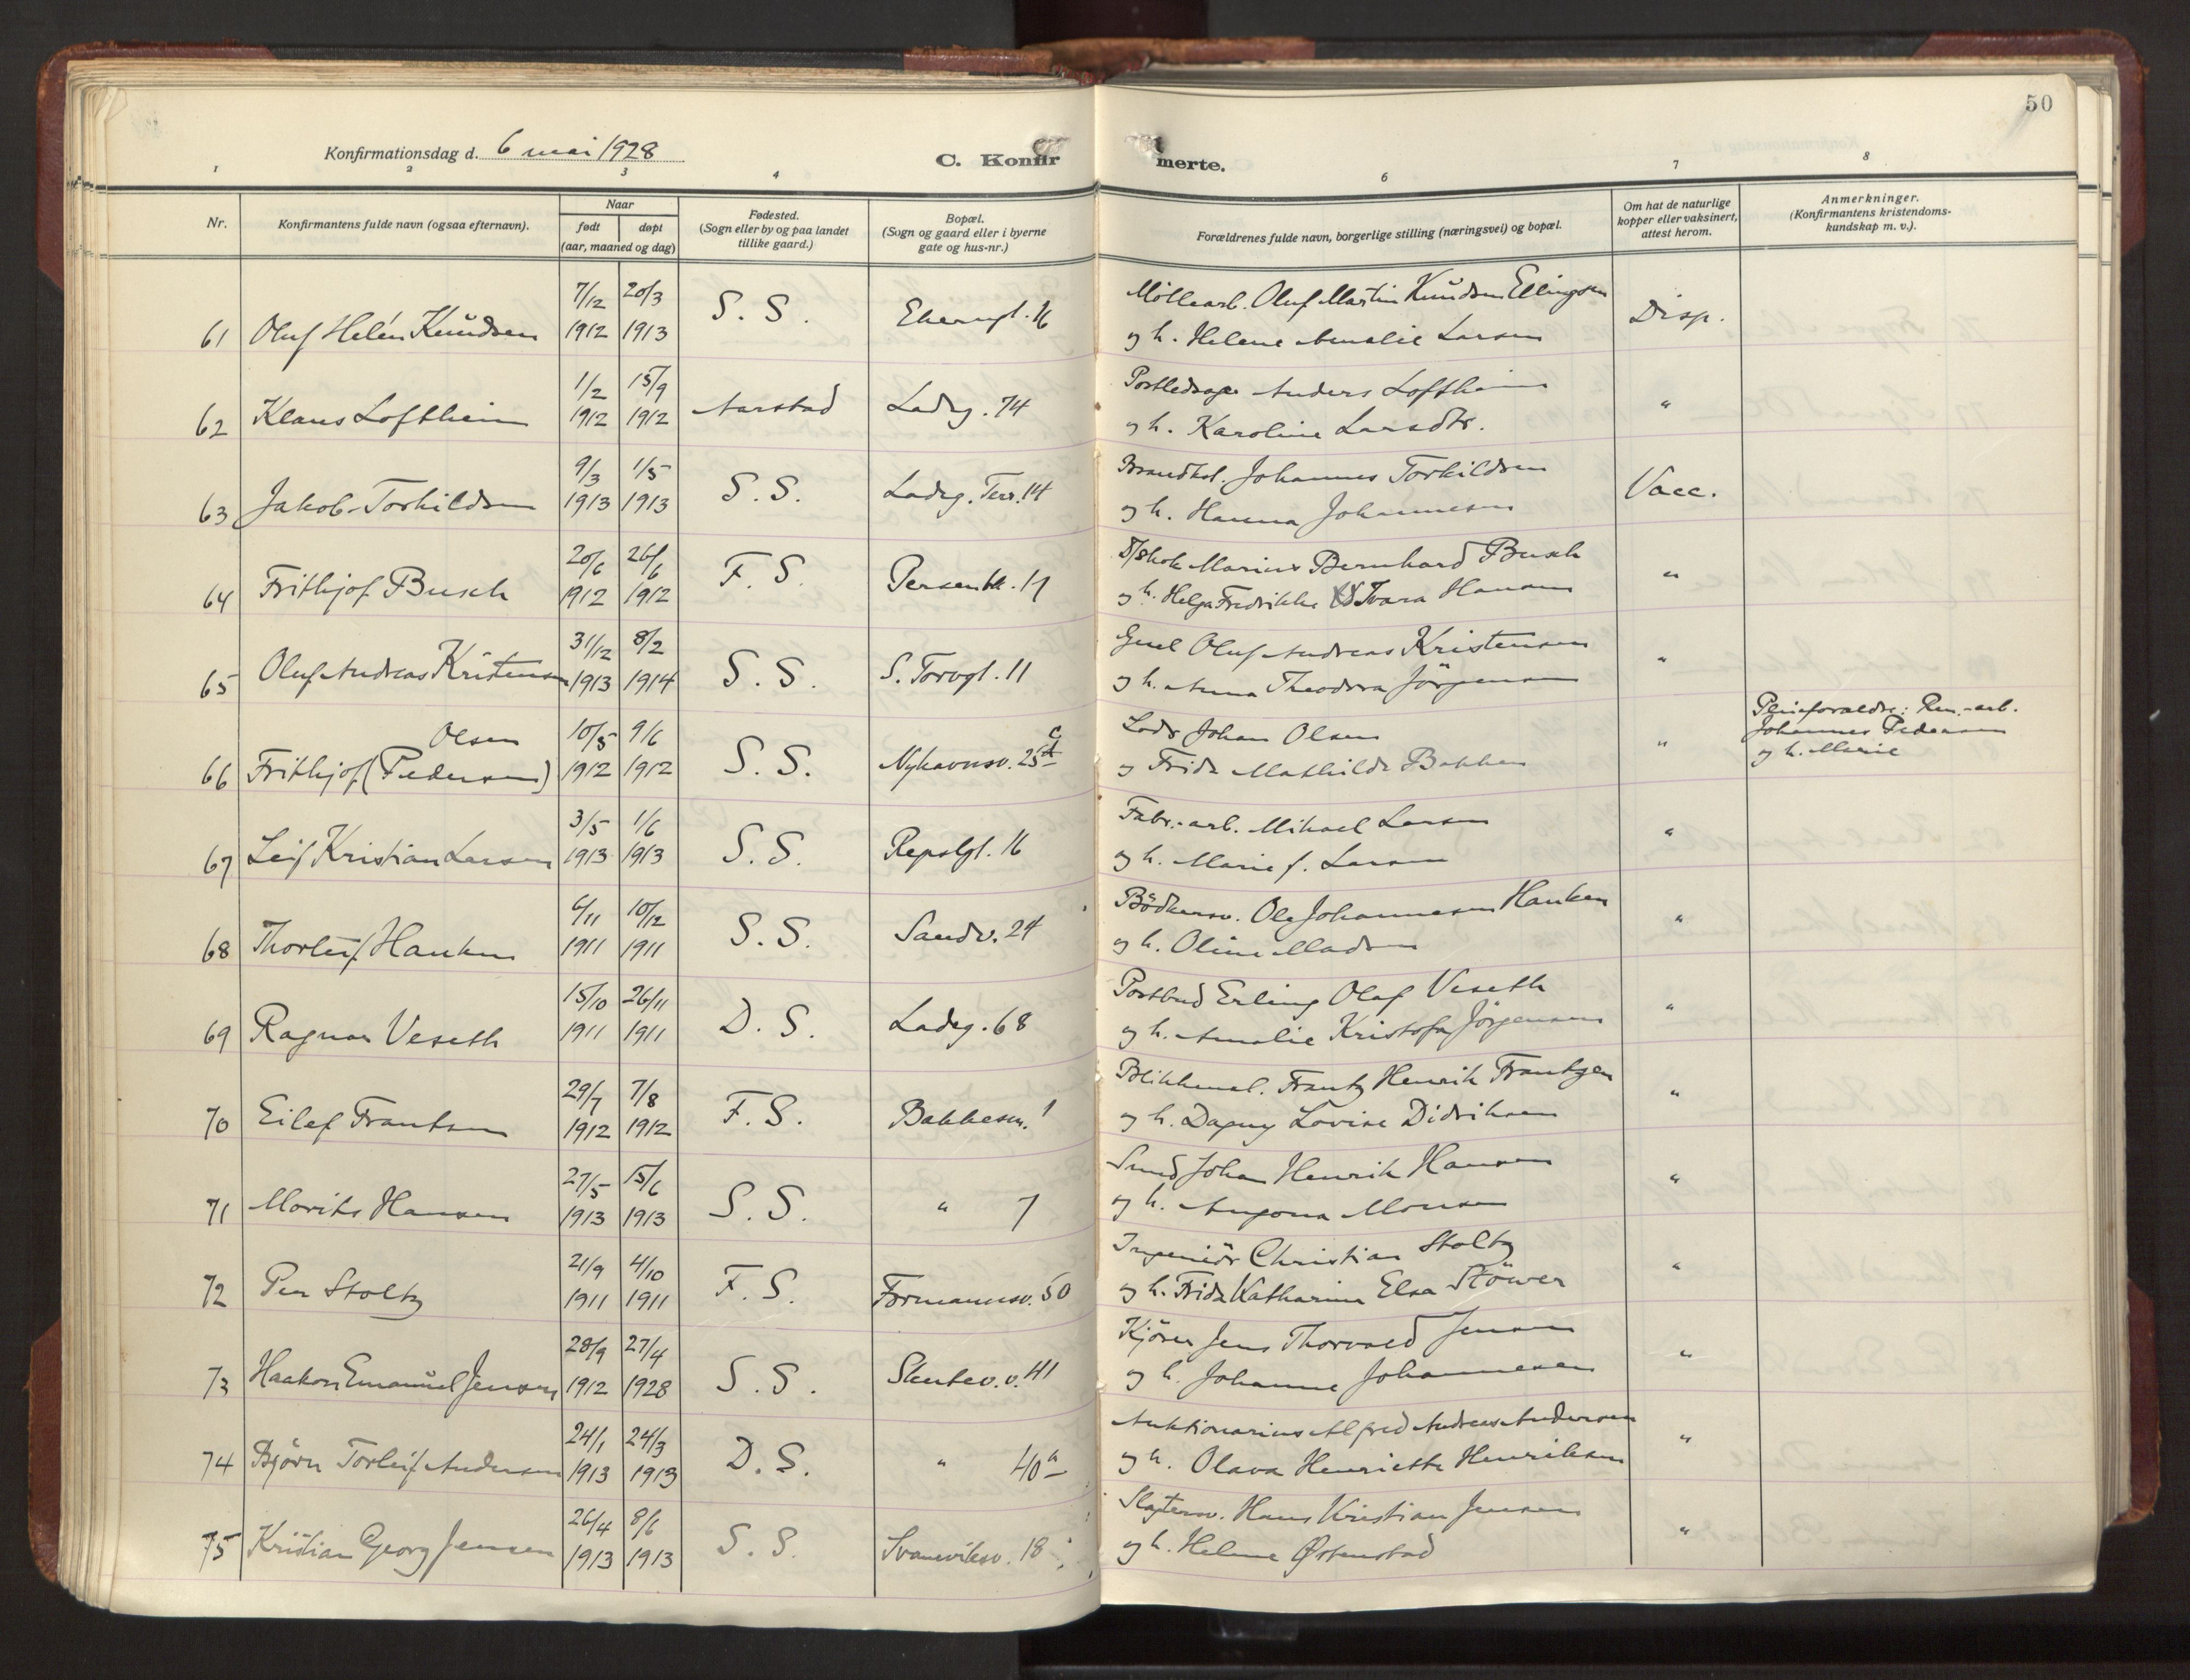 50
Konfirmationsdag d. 6 mai 1928
C. Konfir merte.
1 2 3 4 6 7 8
Nr.
Konfirmantens fulde navn (ogsaa efternavn).
Naar
født døpt
(aar, maaned og dag)
Fødested.
(Sogn eller by og paa landet
tillike gaard.)
Bopæl.
(Sogn og gaard eller i byerne
gate og hus-nr.)
Forældrenes fulde navn, borgerlige stilling (næringsvei) og bopæl.
Om hat de naturlige
kopper eller vaksinert,
attest herom.
Anmerkninger.
(Konfirmantens kristendoms-
kundskap m. v.).
7/12 20/3 Møllearb. Oluf Martin Knudsen Ellingsen
61 Oluf Helén Knudsen 1912 1913 S. S. Ekerngt. 16 og h. Helene Amalie Larsen Disp.
1/2 15/9 Anders Loftheim
62 Klaus Loftheim 1912 1912 Aarstad Ladeg. 74 og h. Karoline Larsdtr. "
9/3 1/5 Johannes Torkildsen
63 Jakob Torkildsen 1913 1913 S. S. Ladeg. Terr. 14 og h. Hanna Johannesen Vacc.
20/6 26/6 Marius Bernhard Busch
64 Frithjof Busch 1912 1912 F. S. 17 og h. Helga Fredrikke Tvara Hansen "
31/12 8/2 Oluf Andreas Kristensen
65 Oluf Andreas Kristensen 1913 1914 S. S. S. Torvgt. 11 og h. Anna Theodora Jörgensen "
Olsen 10/5 9/6 Lods Johan Olsen
66 Frithjof (Pedersen) 1912 1912 S. S. Nyhavnsv. 25 c og Frida Mathilde Bakken "
Pleieforældre: Ren.-arb.
Johannes Pedersen
og h. Marie
3/5 1/6 Fabr.-arb. Mikael Larsen
67 Leif Kristian Larsen 1913 1913 S. S. Repslgt. 16 og h. Marie f. Larsen "
6/11 10/12 Bödkersv. Ole Johannesen Hauken
68 Thorleif Hauken 1911 1911 S. S. Sandv. 24 og h. Oline Madsen "
15/10 26/11 Postbud Erling Olaf Veseth
69 Ragnar Veseth 1911 1911 D. S. Ladeg. 68 og h. Amalie Kristofa Jörgensen "
29/7 7/8 Frantz Henrik Frantzen
70 Eilef Frantsen 1912 1912 F. S. Bakkesm. 1 og h. Dagny Lovise Didriksen "
27/5 15/6 Smed Johan Henrik Hansen
71 Morits Hansen 1913 1913 S. S. " 7 og h. Angona Monsen "
21/9 4/10 Ingeniör Christian Stoltz
72 Per Stoltz 1911 1911 F. S. Formannsv. 50 og h. Frida Katharina Elsa Stöwer "
28/9 27/4 Kjörer Jens Thorvald Jensen
73 Haakon Emanuel Jensen 1912 1928 S. S. Skutev. v. 41 og h. Johanne Johannesen "
24/1 24/3 Auktionarius Alfred Andreas Andersen
74 Bjørn Torleif Andersen 1913 1913 D. S. " 40 a og h. Olava Henriette Henriksen "
26/4 8/6 Slagtersv. Hans Kristian Jensen
75 Kristian Georg Jensen 1913 1913 S. S. Svaneviksv. 18 og h. Helene Østenstad "